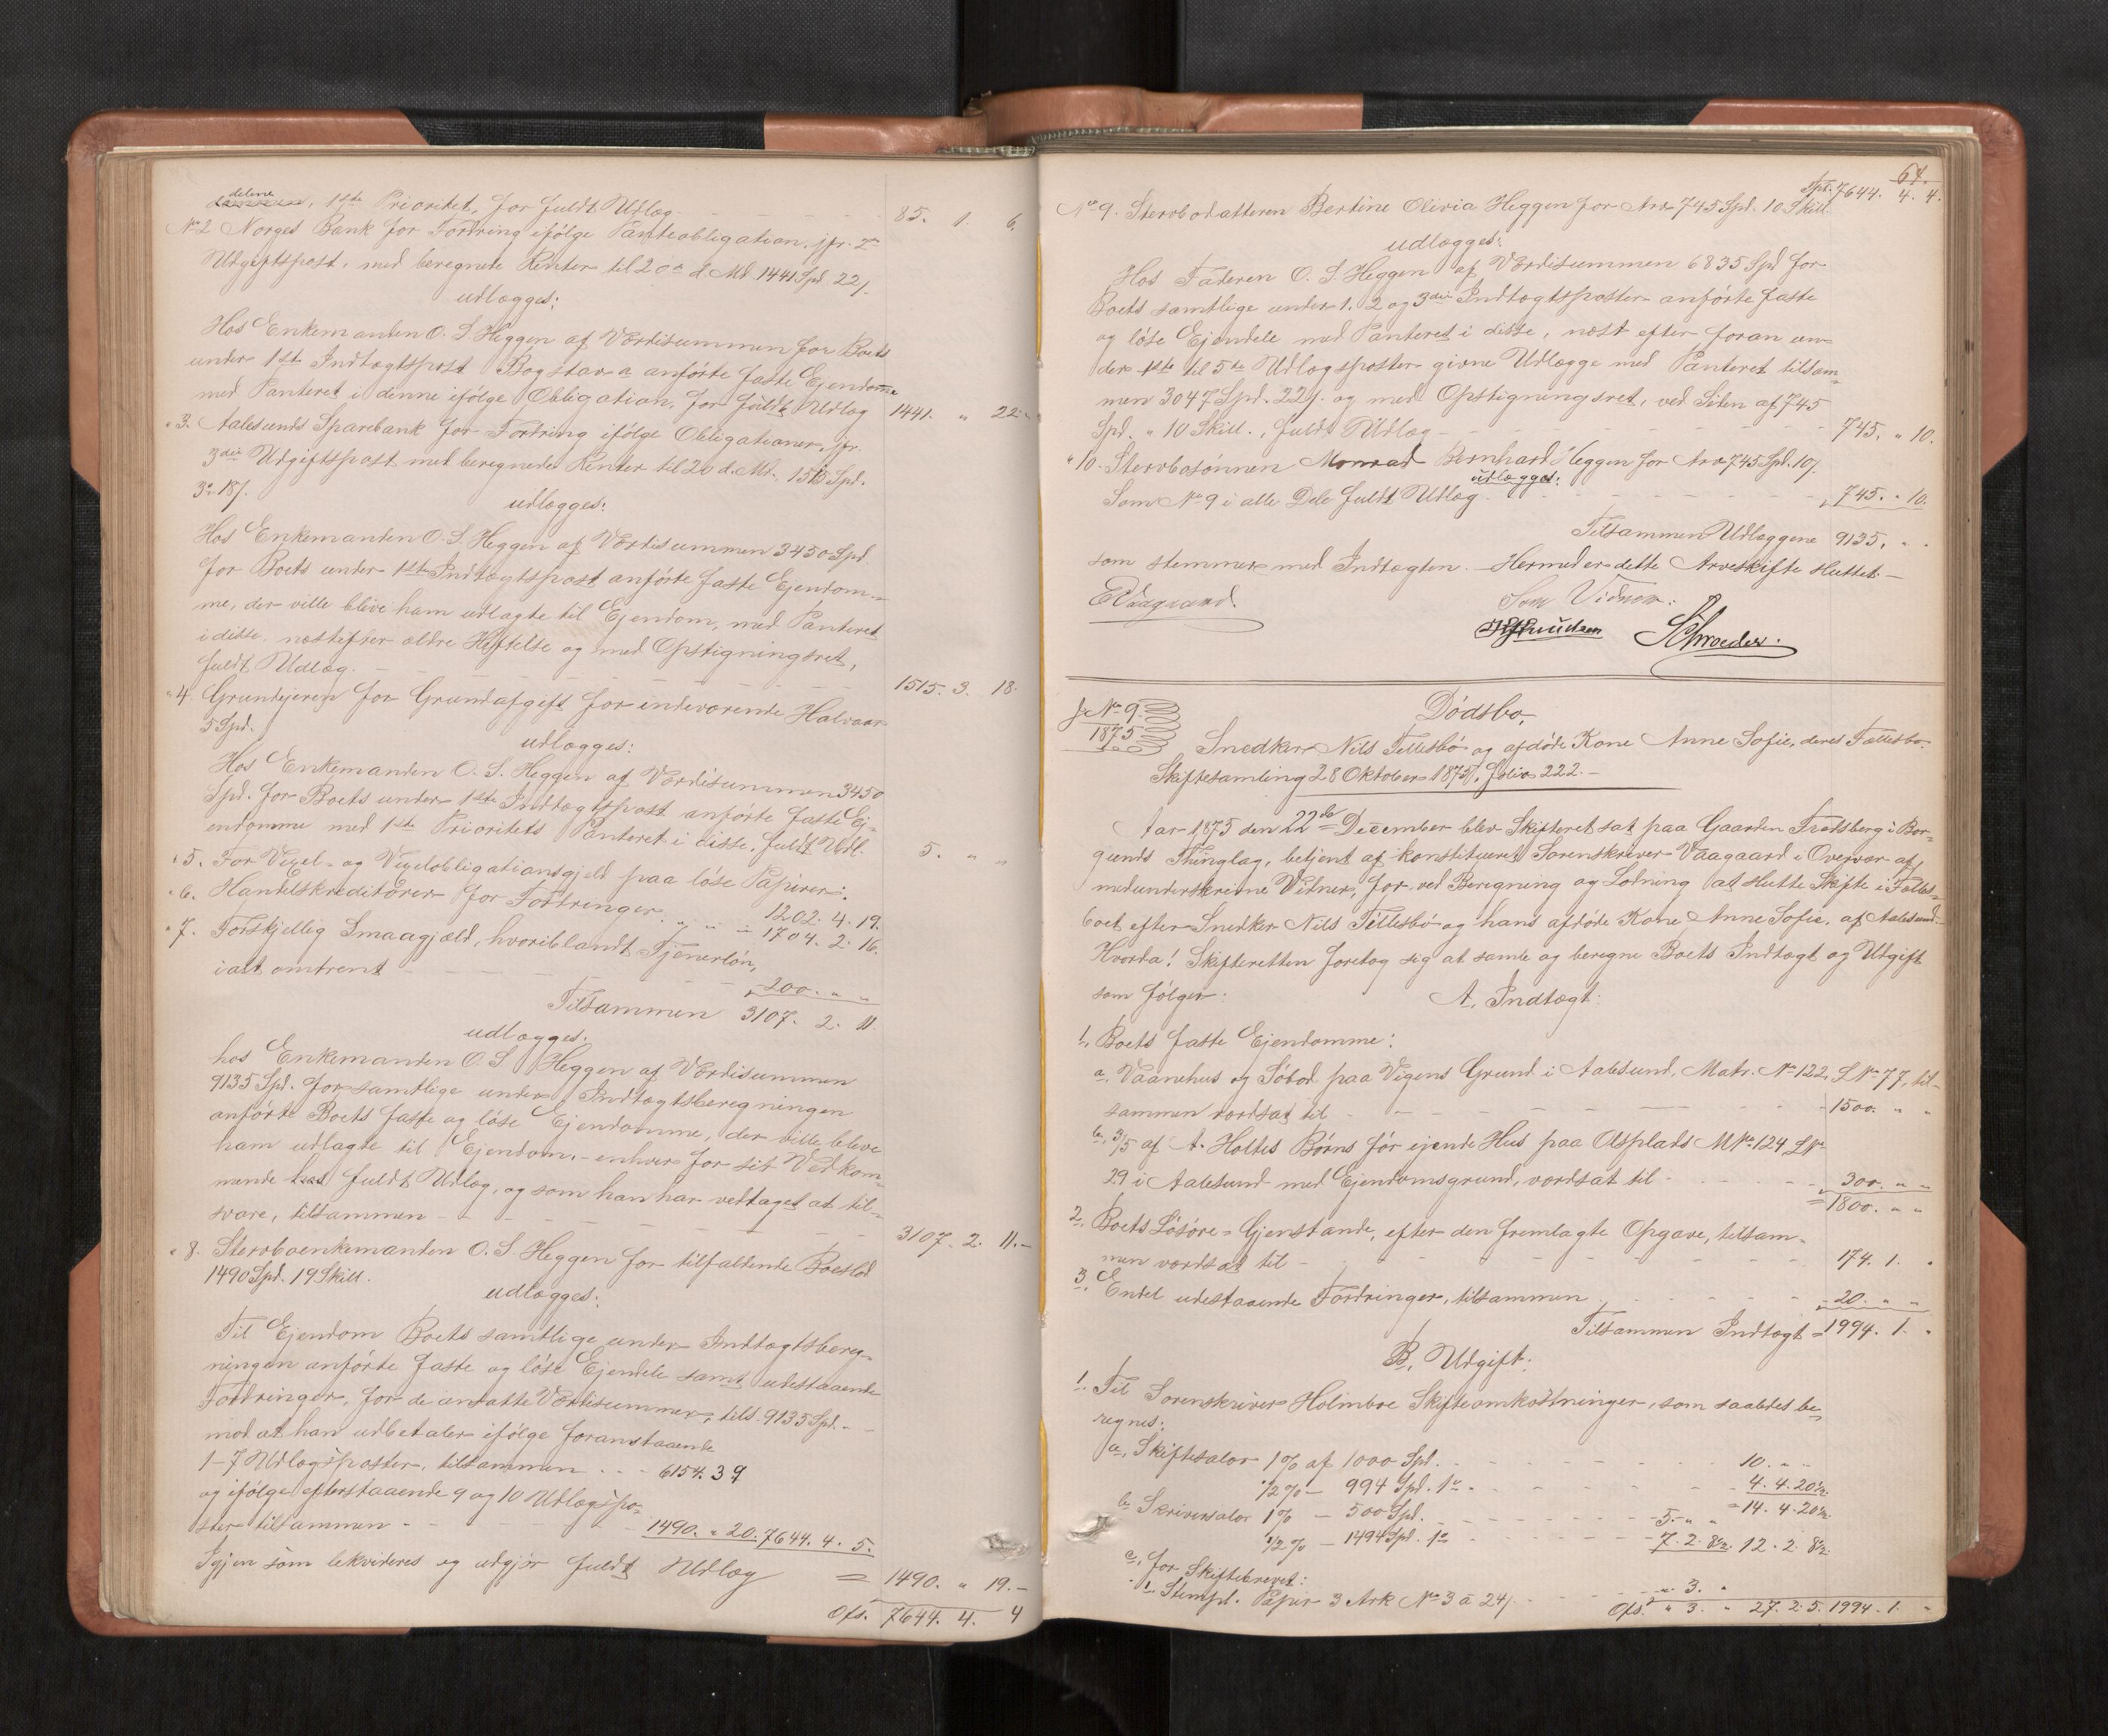 delene
1ste Prioritet, for fuldt Udlæg - - - - - 85. 1. 6.
No 2 Norges Bank for Fordring ifølge Panteobligation, jfr. 2den
Udgiftspost, med beregnede Renter til 20de d. Md. 1441 Spd 22/.
udlægges:
Hos Enkemanden O. S. Heggen af Værdisummen for Boets
under 1ste Indtægtspost Bogstav a anførte faste Ejendomme
med Panteret i denne ifølge Obligation, for fuldt Udlæg 1441. " 22. -
" 3. Aalesunds Sparebank for Fordring ifølge Obligationer, jfr.
3die Udgiftspost med beregnede Renter til 20 d. Md., 1515 Spd.
3o 18/.
udlægges:
Hos Enkemanden O. S Heggen af Værdisummen 3450 Spd
for Boets under 1ste Indtægtspost anførte faste Ejendom-
me, der ville blive ham udlagte til Ejendom, med Panteret
i disse næstefter ældre Heftelse og med Opstigningsret,
fuldt Udlæg. - - - - - 1515. 3. 18.
" 4. Grundejeren for Grundafgift for indeværende Halvaar
5 Spd.
udlægges:
Hos Enkemanden O. S. Heggen af Værdisummen 3450
Spd. for Boets under 1ste Indtægtspost anførte faste Ej-
endomme med 1ste Prioritets Panteret i disse, fuldt Udl. 5. " "
" 5. For Vexel- og Vexelobligationsgjeld paa løse Papirer: 1202. 4. 19.
" 6. Handelskreditorer for Fordringer " " = 1704. 2. 16.
" 7. Forskjellig Smaagjæld, hvoriblandt Tjenerløn,
i alt omtrent - - - - 200. " "
Tilsammen 3107. 2. 11.
udlægges:
hos Enkemanden O. S Heggen af Værdisummen
9135 Spd. for samtlige under Indtægtsberegningen
anførte Boets faste og løse Ejendomme, der ville bleve
ham udlagte til Ejendom, - enhver for sit Vedkom-
mende fuldt Udlæg, og som han har vedtaget at til-
svare, tilsammen - - - - - 3107. 2. 11. -
" 8. Stervboenkemanden O. S Heggen for tilfaldende Boeslod
1490 Spd. 19 Skill.
udlægges:
Til Ejendom Boets samtlige under Indtægtsbereg-
ningen anførte faste og løse Ejendele samt udestaaende
Fordringer, for de ansatte Værdisummer, tils. 9135 Spd. -
mod at han udbetaler ifølge foranstaaende
1-7 Udlægsposter, tilsammen . . - 6154. 3 9
og ifølge efterstaaende 9 og 10 Udlægspo-
ster tilsammen - - - 1490. " 20. 7644. 4. 5.
Igjen som lekvideres og udgjør fuldt Udlæg = 1490. " 19. -
Ofs. 7644. 4. 4
64.
Spd. 7644. 4. 4.
No 9. Stervbodatteren Bertine Olivia Heggen for Arv 745 Spd. 10 Skill.
udlægges:
Hos Faderen O. S. Heggen af Værdisummen 6835 Spd for
Boets samtlige under 1. 2 og 3die Indtægtsposter anførte faste
og løse Ejendele med Panteret i disse, næst efter foran un-
der 1ste til 5te Udlægsposter givne Udlægge med Panteret tilsam-
men 3047 Spd. 22/. og med Opstigningsret, ved Siden af 745
Spd. " 10 Skill., fuldt Udlæg - - - - - 745. " 10.
" 10. Stervbosønnen Monrad Bernhard Heggen for Arv 745 Spd. 10/.
udlægges:
Som No 9 i alle Dele fuldt Udlæg - - - - - 745. " 10.
Tilsammen Udlæggene 9135. " "
som stemmer med Indtægten. - Hermed er dette Arveskifte sluttet. -
E Vaagaard.
Som Vidner:
Knudsen Schroeder.
J No 9.
1875
Dødsbo,
Snedker Nils Tellesbø og afdøde Kone Anne Sofie, deres Fællesbo.
Skiftesamling 28 Oktober 1875, folio 222. -
Aar 1875 den 22de December blev Skifteret sat paa Gaarden Fredsberg i Bor-
gunds Thinglag, betjent af konstitueret Sorenskriver Vaagaard i Overvær af
medunderskrivne Vidner, for ved Beregning og Lodning at slutte Skifte i Fælles-
boet efter Snedker Nils Tellesbø og hans afdøde Kone Anne Sofie, af Aalesund.
Hvorda! Skifteretten foretog sig at samle og beregne Boets Indtægt og Udgift
som følger: A. Indtægt:
1. Boets faste Ejendomme:
a. Vaanehus og Søbod paa Vigens Grund i Aalesund, Matr. No 122, L No 77, til-
sammen værdsat til - - - - - 1500. " "
b. 3/5 af A. Holtes Børns før ejende Hus paa Asplads M No 124 L No
29 i Aalesund med Ejendomsgrund, værdsat til - - - 300. " "
= 1800. " "
2. Boets Løsøre-Gjenstande, efter den fremlagte Opgave, tilsam-
men værdsat til - - - - - 174. 1. "
3. Endel udestaaende Fordringer, tilsammen - - - - 20. " "
Tilsammen Indtægt = 1994. 1. "
B. Udgift:
1. Til Sorenskriver Holmboe Skifteomkostninger, som saaledes be-
regnes:
a. Skiftesalær 1% af 1000 Spd. - - - - 10. " "
1/2% - 994 Spd. 1o - - - - 4. 4. 20 1/2.
= 14. 4. 20 1/2.
b. Skriversalær 1% - 500 Spd. - - - 5. " "
1/2% - 1494 Spd. 1o - - - 7. 2. 8 1/2. 12. 2. 8 1/2.
c. for Skiftebrevet:
1. Stempl. Papir 3 Ark No 3 à 24/. - - - " 3. "
Ofs. " 3. " 27. 2. 5. 1994. 1. "